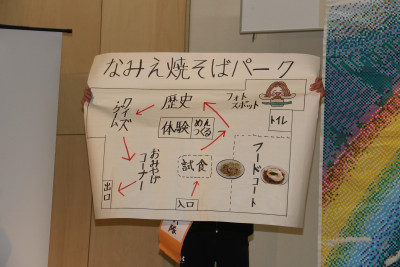 なみえ焼そばパーク
歴史
フォト
スポット
クイズ
・ゲーム
体験
めん
つくる
トイレ
おみやげ
コーナー
試食
フードコート
出口
入口